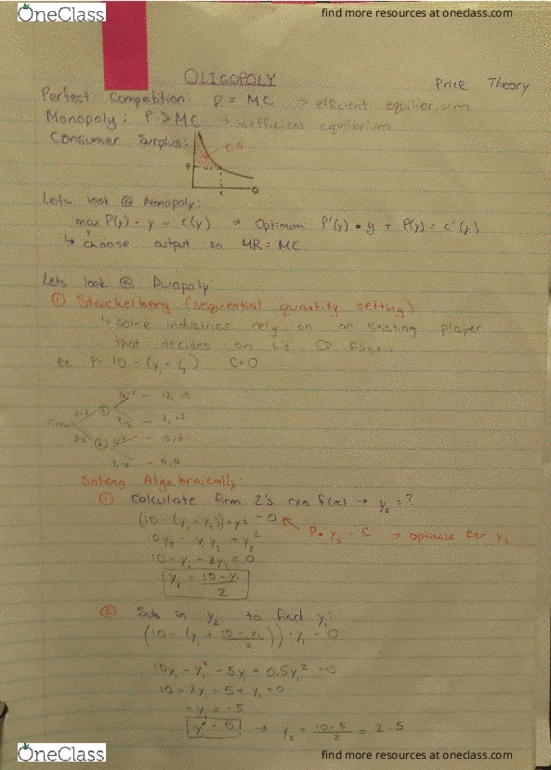 OneClass
find more resources at oneclass.com
OLIGOPOLY
Price Theory
Perfect Competition: P = MC → efficient equilibrium
Monopoly: P > MC → inefficient equilibrium
Consumer Surplus:
CS
P
Q
Lets look @ Monopoly:
max P(y) · y - c(y) → Optimum: P'(y) · y + P(y) = c'(y)
y
↳ choose output so MR = MC
Lets look @ Duopoly:
① Stackelberg (sequential quantity setting)
↳ some industries rely on an existing player
that decides on first...
ex. P = 10 - (y₁ + y₂) C=0
Solving Algebraically:
① Calculate firm 2's rxn f(x) → y₂ = ?
(10 - (y₁ - y₂)) · y₂ - 0
P · y₂ - C → optimize for y₂
10y₂ - y₁y₂ - y₂²
10 - y₁ - 2y₂ = 0
y₂ = 10 - y₁ / 2
② Sub in y₂ to find y₁:
(10 - (y₁ + 10 - y₁ / 2)) · y₁ - 0
10y₁ - y₁² - 5y₁ + 0.5y₁² = 0
10 - 2y₁ - 5 + y₁ = 0
- y₁ = -5
y₁* = 5 → y₂ = 10 - 5 / 2 = 2.5
OneClass
find more resources at oneclass.com